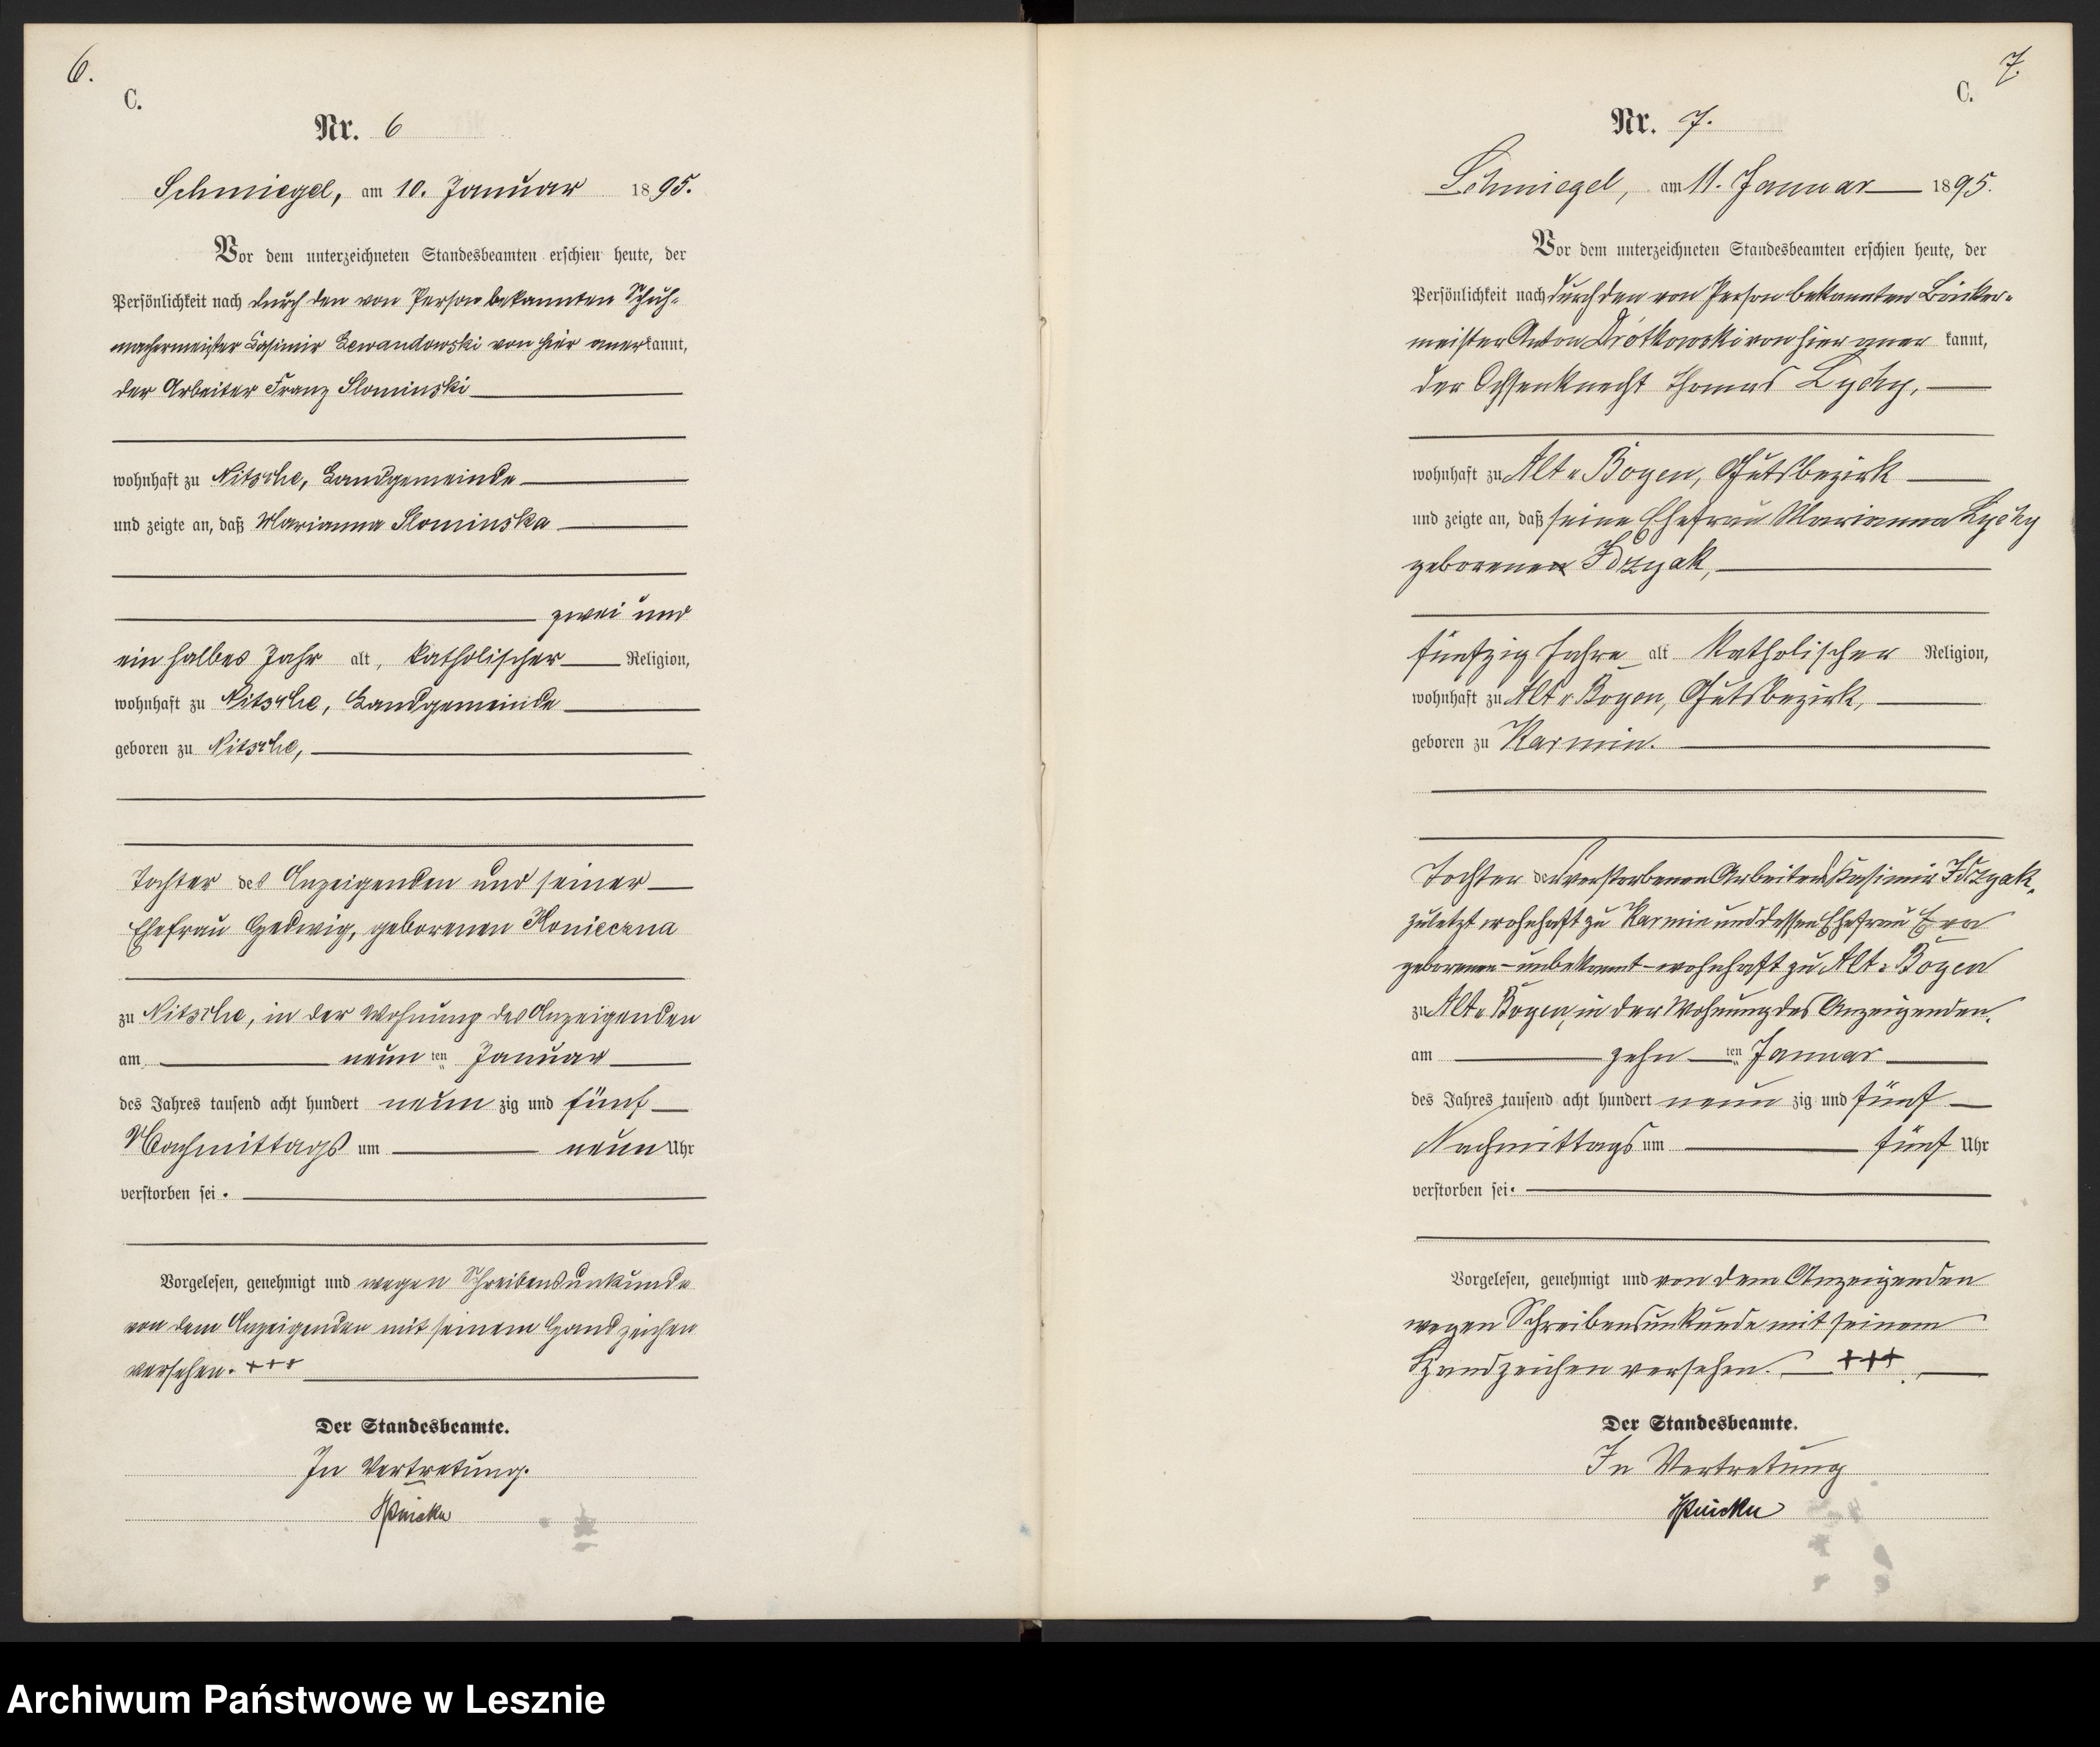 6.
C.
Nr. 6
Schmiegel, am 10. Januar 1895.
Vor dem unterzeichneten Standesbeamten erschien heute, der
Persönlichkeit nach durch den von Person bekannten Schuh-
machermeister Casimir Lewandowski von hier anerkannt,
der Arbeiter Franz Slominski
wohnhaft zu Nitsche, Landgemeinde
und zeigte an, daß Marianna Slominska
zwei und
ein halbes Jahr alt, katholischer Religion,
wohnhaft zu Nitsche, Landgemeinde
geboren zu Nitsche,
Tochter des Anzeigenden und seiner
Ehefrau Hedwig, geborenen Konieczna
zu Nitsche, in der Wohnung des Anzeigenden
am neun ten Januar
des Jahres tausend acht hundert neun zig und fünf
Nachmittags um neun Uhr
verstorben sei.
Vorgelesen, genehmigt und wegen Schreibensunkunde
von dem Anzeigenden mit seinem Handzeichen
versehen. +++
Der Standesbeamte.
In Vertretung.
7.
C.
Nr. 7.
Schmiegel, am 11. Januar 1895.
Vor dem unterzeichneten Standesbeamten erschien heute, der
Persönlichkeit nach durch den von Person bekannten Bäcker-
meister Anton Drótkowski von hier aner kannt,
der Ochsenknecht Thomas Lychy,
wohnhaft zu Alt-Bogen, Gutsbezirk
und zeigte an, daß seine Ehefrau Marianna Lychy
geborenen Idzyak,
fünfzig Jahre alt katholischer Religion,
wohnhaft zu Alt-Bogen, Gutsbezirk,
geboren zu Karmin.
Tochter des verstorbenen Arbeiters Kasimir Idzyak,
zuletzt wohnhaft zu Karmin und dessen Ehefrau Eva
geborenen - unbekannt - wohnhaft zu Alt-Bogen
zu Alt-Bogen, in der Wohnung des Anzeigenden,
am zehn ten Januar
des Jahres tausend acht hundert neun zig und fünf
Nachmittags um fünf Uhr
verstorben sei.
Vorgelesen, genehmigt und von dem Anzeigenden
wegen Schreibensunkunde mit seinem
Handzeichen versehen. +++
Der Standesbeamte.
In Vertretung
Archiwum Państwowe w Lesznie